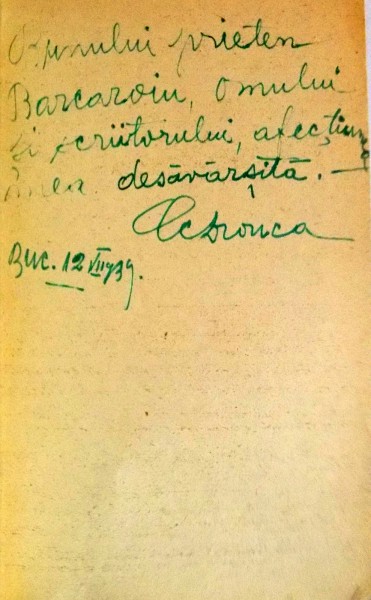 Bunului prieten
Barcaroiu, omului
și scriitorului, afecțiunea
mea desăvârșită. —
Buc. 12 VII 939.